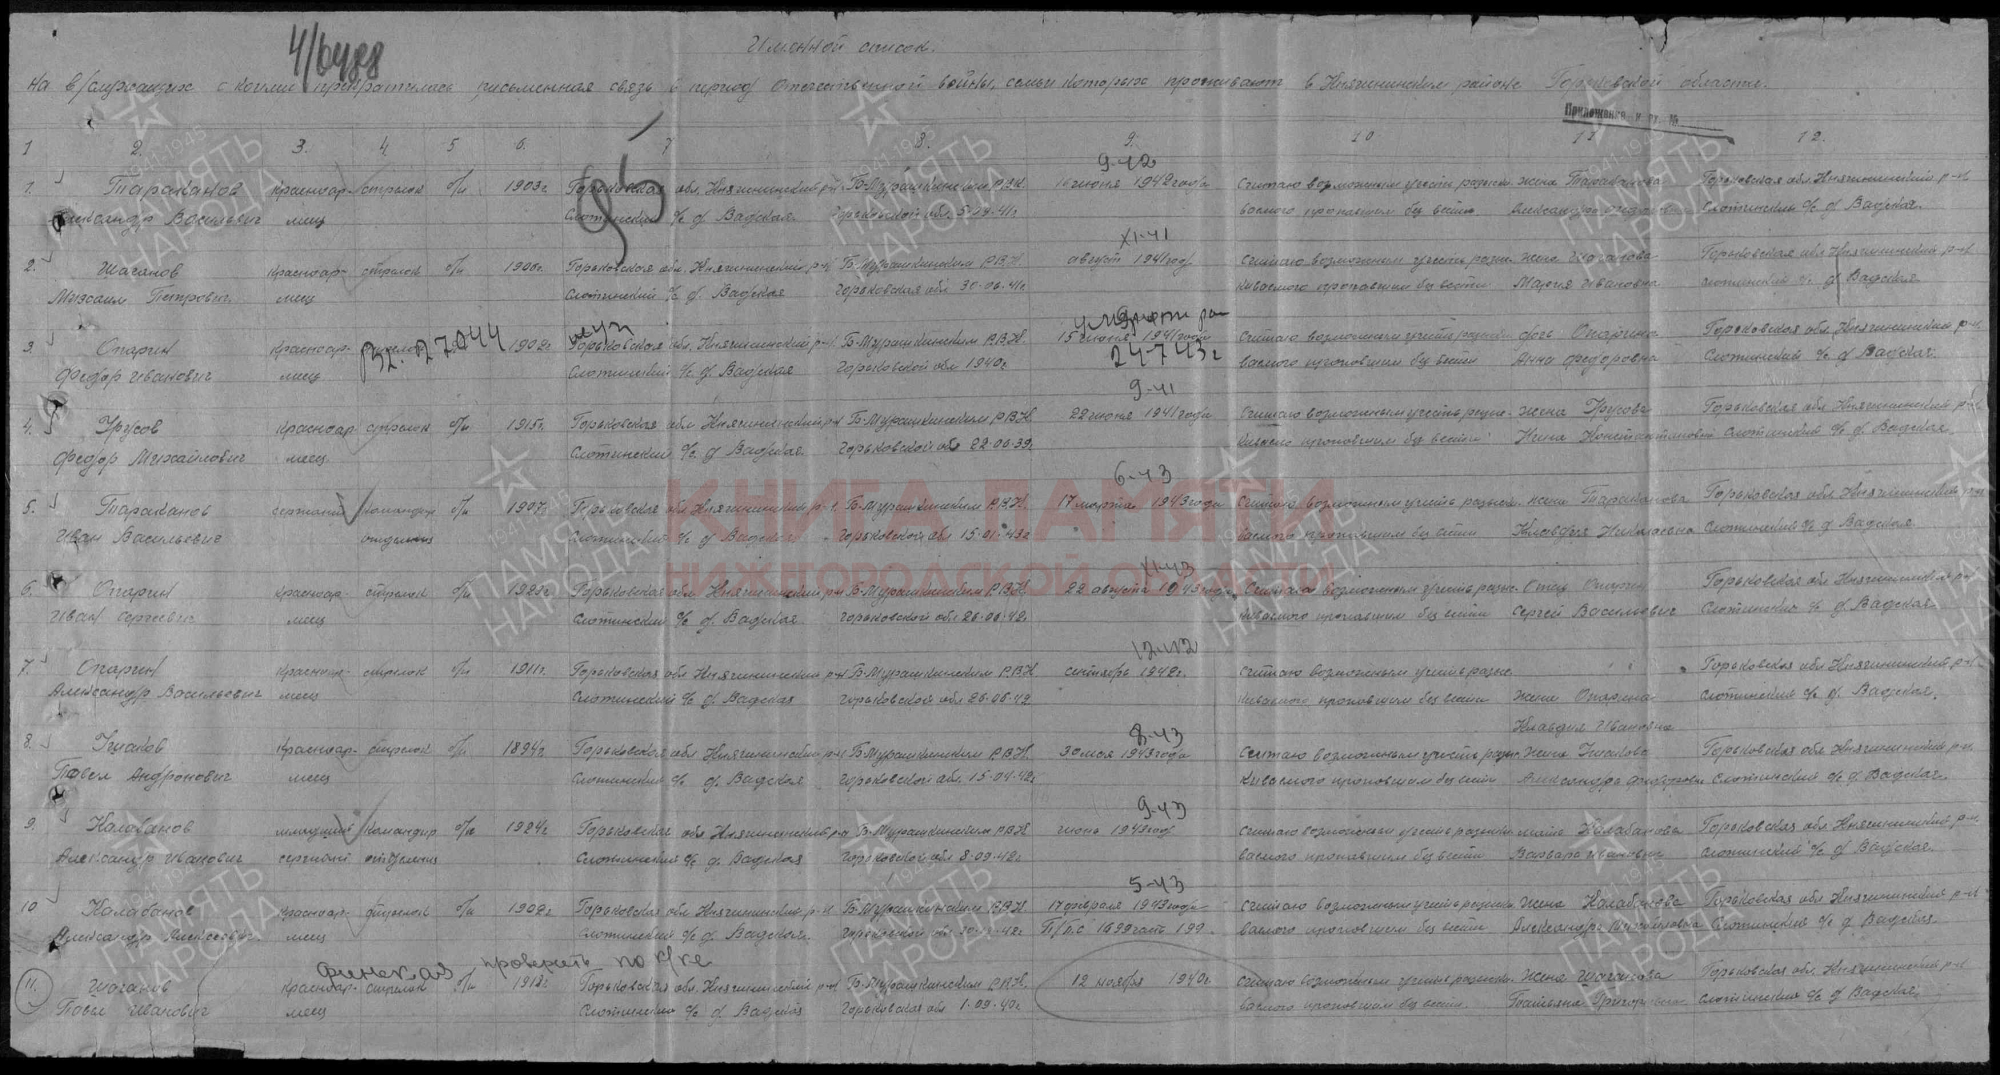 4/6488
Именной список.
На в/служащих с коими прекратилась письменная связь в период Отечественной войны, семьи которых проживают в Княгининском районе Горьковской области.
Приложение к вх. №
1 2. 3. 4 5 6. 7 8. 9. 10 11 12.
95
9-42
1. Тараканов Красноар- стрелок б/п 1903г. Горьковская обл. Княгининский р-н Б-Мурашкинским Р.В.К. июня 1942 года считаю возможным учесть разыски- жена Тараканова Горьковская обл. Княгининский р-н
Александр Васильевич меец Слотинский с/с д. Вадская Горьковской обл. 5-09-41г. ваемого пропавшим без вести Александра Слотинский с/с д. Вадская.
XI-41
2. Шаганов Красноар- стрелок б/п 1900г. Горьковская обл. Княгининский р-н Б-Мурашкинским Р.В.К август 1941 год считаю возможным учесть разыс- жена Шаганова Горьковская обл. Княгининский р-н
Михаил Петрович меец Слотинский с/с д. Вадская Горьковская обл 30-06-41г киваемого пропавшим без вести Мария Ивановна Слотинский с/с д Вадская
умер от ран
3. Опарин Красноар- 1902г. Горьковская обл. Княгининский р-н Б-Мурашкинским Р.В.К 15 июня 1941 года считаю возможным учесть разыски- дочь Опарина Горьковская обл. Княгининский р-н
Вх. 27044
24-7-43г
Федор Иванович меец Слотинский с/с д. Вадская Горьковской обл 1940г. ваемого пропавшим без вести Анна Федоровна Слотинский с/с д Вадская.
9-41
4. Урусов Красноар стрелок б/п 1915г. Горьковская обл Княгининский р-н Б-Мурашкинским Р.В.К 22 июня 1941 года считаю возможным учесть разыс- жена Урусова Горьковская обл Княгининский р-н
Федор Михайлович меец. Слотинский с/с д Вадская. Горьковской об 22-06-39. киваемого пропавшим без вести Нина Константиновна Слотинский с/с д. Вадская.
6-43
5. Тараканов сержант командир б/п 1907г. Горьковская обл Княгининский р-н. Б-Мурашкинским Р.В.К 17 марта 1943 года считаю возможным учесть разыски- жена Тараканова Горьковская обл. Княгининский р-н
Иван Васильевич отделения Слотинский с/с д Вадская Горьковской обл 15-01-43г ваемого пропавшим без вести Клавдия Николаевна Слотинский с/с д Вадская
XI-43
6. Опарин Красноар стрелок б/п 1923г Горьковская обл. Княгининский р-н Б-Мурашкинским Р.В.К 22 августа 1943 года считаю возможным учесть разыс- Отец Опарин Горьковская обл Княгининский р-н.
Иван Сергеевич меец Слотинский с/с д Вадская Горьковской обл 26-06-42г. киваемого пропавшим без вести Сергей Васильевич Слотинский с/с д Вадская.
12-42
7. Опарин Красноар- стрелок б/п 1911г. Горьковская обл Княгининский р-н Б-Мурашкинским Р.В.К сентябрь 1942г. считаю возможным учесть разыс- Горьковская обл Княгининский р-н
Александр Васильевич меец Слотинский с/с д. Вадская Горьковской обл 26-06-42 киваемого пропавшим без вести Жена Опарина Слотинский с/с д. Вадская.
Клавдия Ивановна
8-43
8. Красноар- стрелок б/п 1894г Горьковская обл Княгининский р-н Б-Мурашкинским Р.В.К. 30 мая 1943 года считаю возможным учесть разыс- Жена Горьковская обл Княгининский р-н.
Павел Андронович меец Слотинский с/с д. Вадская Горьковской обл. 15-04-42г киваемого пропавшим без вести Александра Федоровна Слотинский с/с д. Вадская.
9-43
9. Калабанов младший командир б/п 1924г Горьковская обл Княгининский р-н Б-Мурашкинским Р.В.К июнь 1943 год считаю возможным учесть разыски- мать Калабанова Горьковская обл. Княгининский р-н.
Александр Иванович сержант отделения Слотинский с/с д. Вадская Горьковской обл 8-09-42г ваемого пропавшим без вести Варвара Ивановна Слотинский с/с д. Вадская.
5-43
10 Калабанов Красноар- стрелок б/п 1902г Горьковская обл Княгининский р-н Б-Мурашкинским Р.В.К 17 февраля 1943 года считаю возможным учесть разыски- Жена Калабанова Горьковская обл Княгининский р-н
Александр Алексеевич меец Слотинский с/с д. Вадская. П/п.с 1699 часть 199. ваемого пропавшим без вести Александра Михайловна Слотинский с/с д. Вадская.
финская проверить по к/ке
11. Шаганов Красноар- стрелок б/п 1918г Горьковская обл. Княгининский р-н Б-Мурашкинским Р.В.К. 12 ноября 1940г. считаю возможным учесть разыски- Жена Шаганова Горьковская обл. Княгининский р-н
Павел Иванович меец Слотинский с/с д Вадская Горьковская обл 1-09-40г. ваемого пропавшим без вести. Татьяна Григорьевна Слотинский с/с д Вадская
КНИГА ПАМЯТИ
НИЖЕГОРОДСКОЙ ОБЛАСТИ
1941-1945
ПАМЯТЬ
НАРОДА